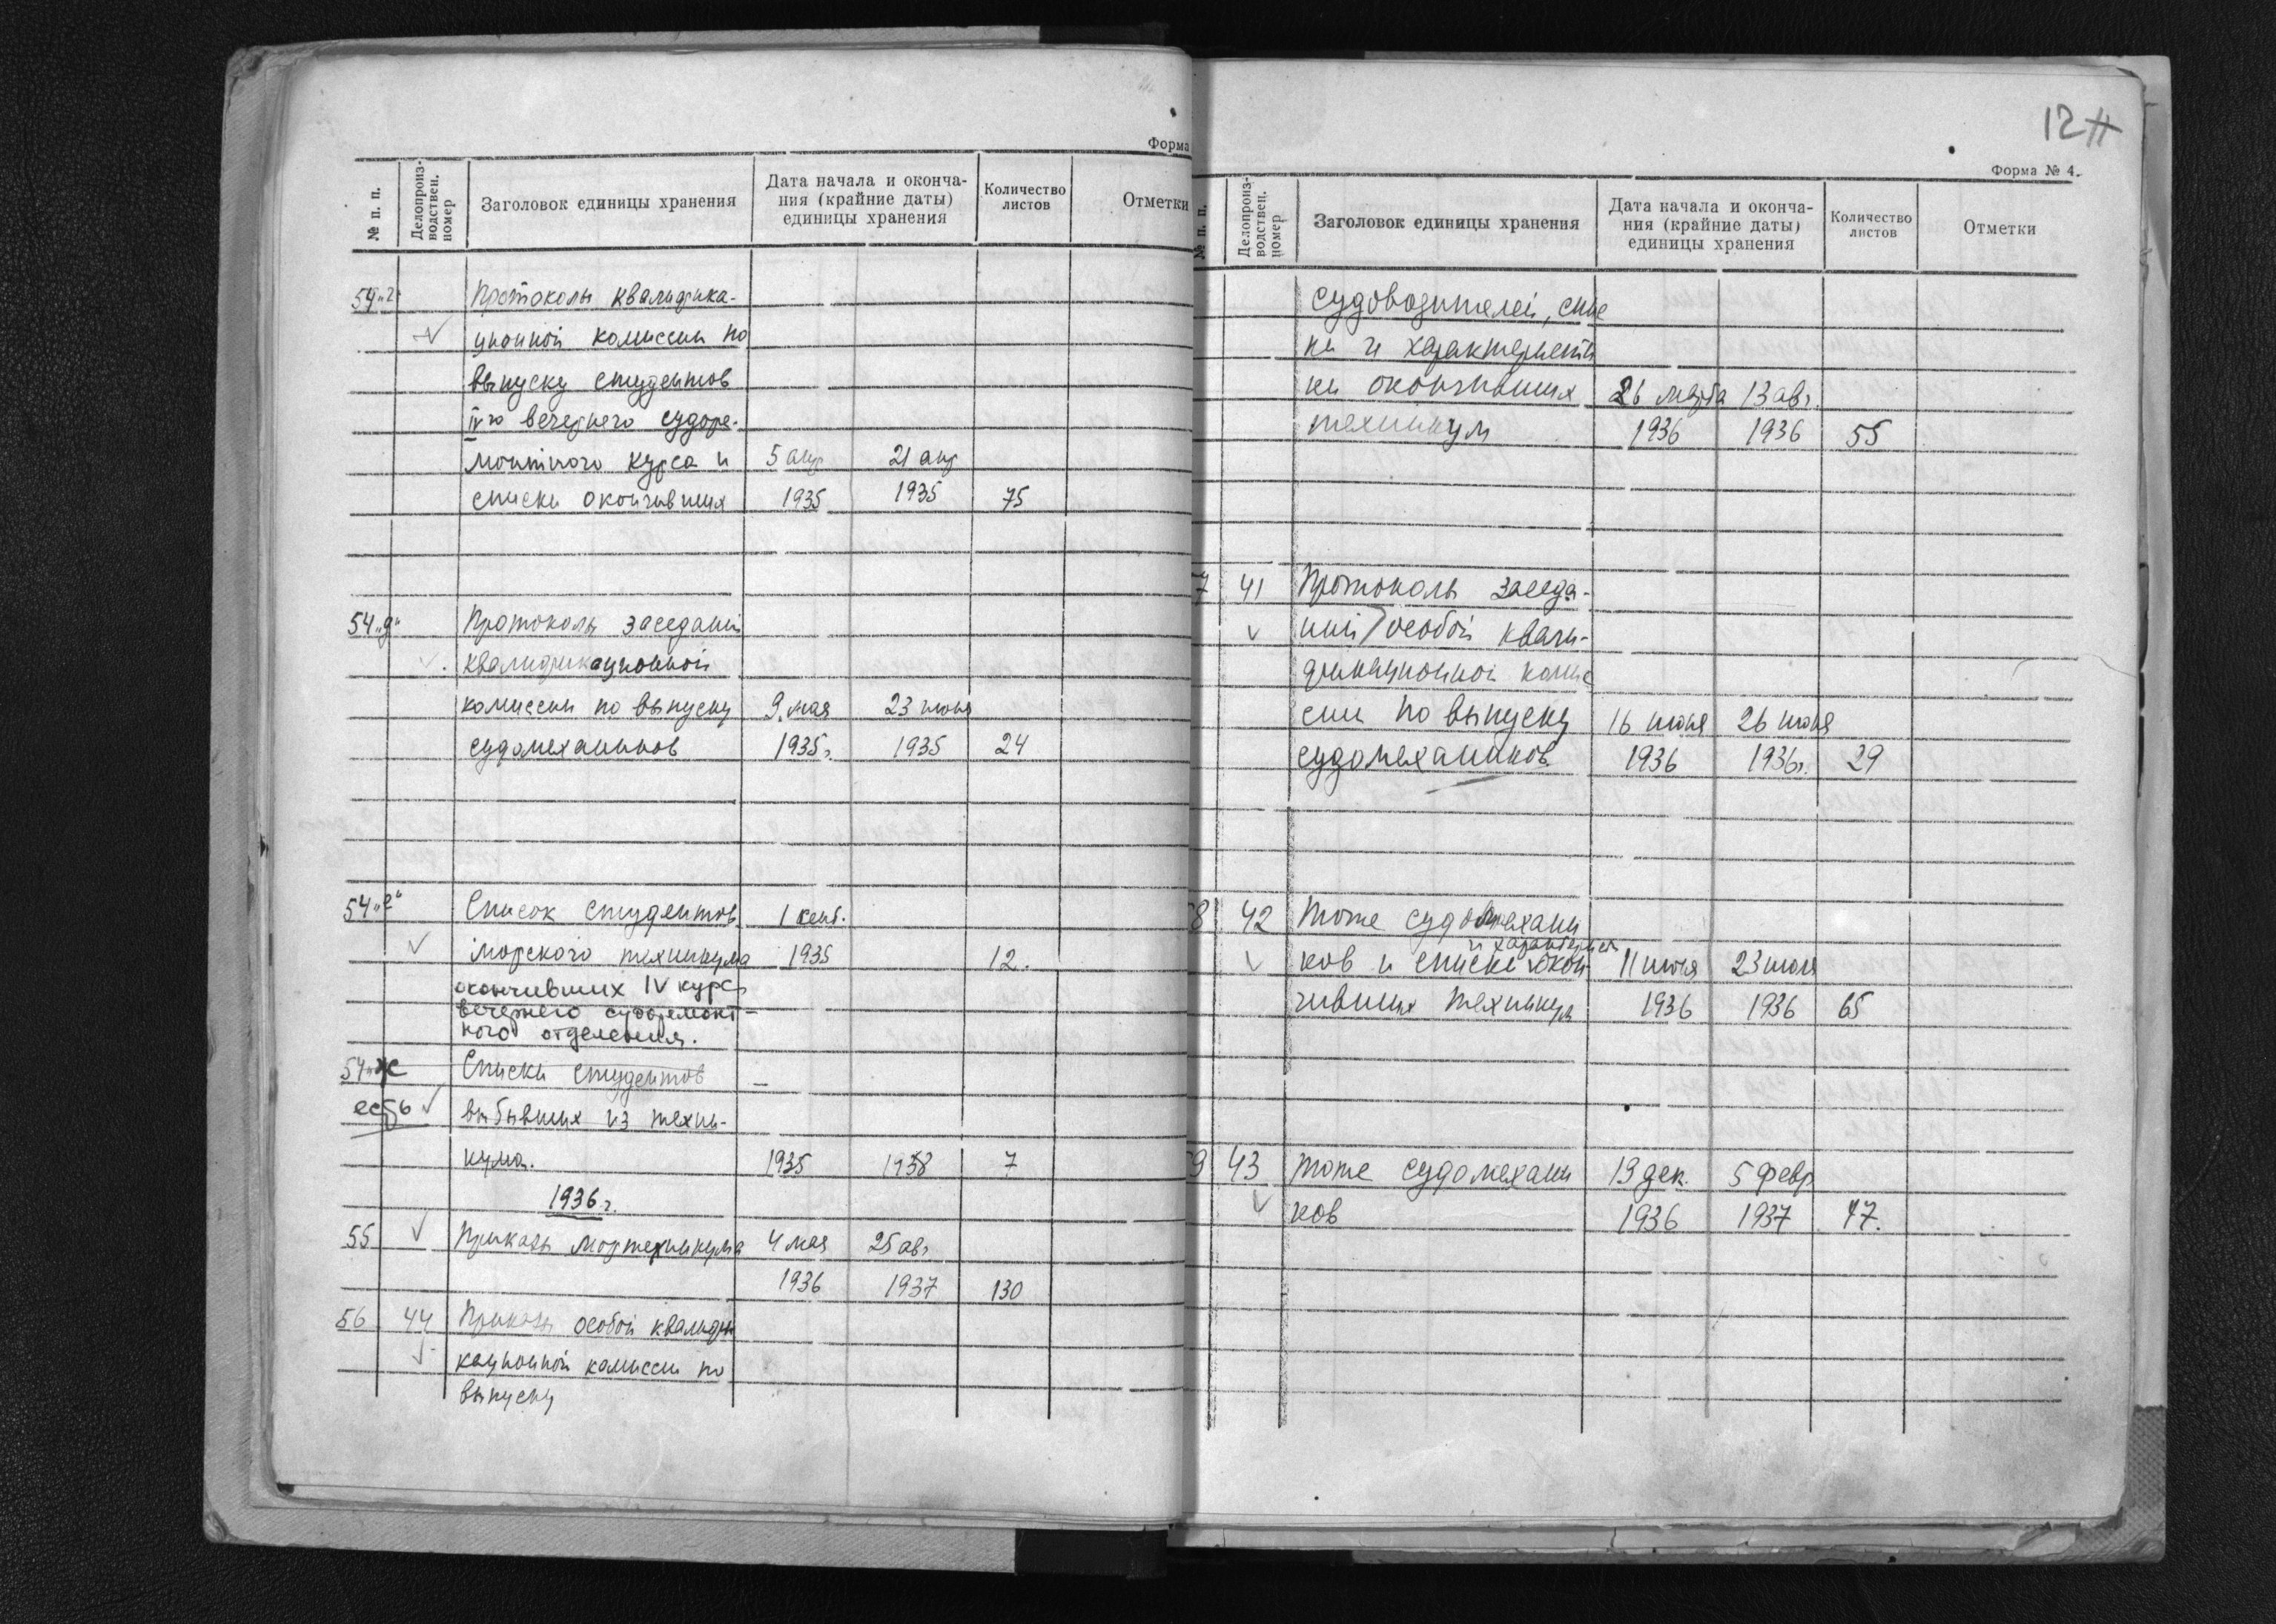 Форма
№ п. п.
Делопроиз-
водствен.
номер
Заголовок единицы хранения
Дата начала и оконча-
ния (крайние даты)
единицы хранения
Количество
листов
Отметки
54 „г“ Протоколы квалифика-
ционной комиссии по
выпуску студентов
IV го вечернего судоре-
монтного курса и 5 апр 21 апр
списки окончивших 1935 1935 75
54 „д“ Протоколы заседаний
квалификационной
комиссии по выпуску 9 мая 23 июня
судомехаников 1935 г. 1935 24
54 „е“ Список студентов 1 сент.
морского техникума 1935 12.
окончивших IV курс
вечернего судоремонт-
ного отделения.
54 „ж Списки студентов —
есть выбывших из техни-
кума. 1935 1938 7
1936 г.
55 Приказы мортехникума 4 мая 25 авг
1936 1937 130
56 44 Приказы особой квалифи
кационной комиссии по
выпуску
12
Форма № 4.
№ п. п.
Делопроиз-
водствен.
номер
Заголовок единицы хранения
Дата начала и оконча-
ния (крайние даты)
единицы хранения
Количество
листов
Отметки
судоводителей, спис
ки и характеристи
ки окончивших 26 марта 13 авг.
техникум 1936 1936 55
7 41 Протоколы заседа-
ний особой квали-
фикационной комис
сии по выпуску 16 июня 26 июня
судомехаников 1936 1936 г. 29
8 42 Тоже судомехани
и характерист
ков и списки окон- 11 июня 23 июля
чивших техникум 1936 1936 65
9 43 Тоже судомехани 19 дек. 5 февр
ков 1936 1937 47.